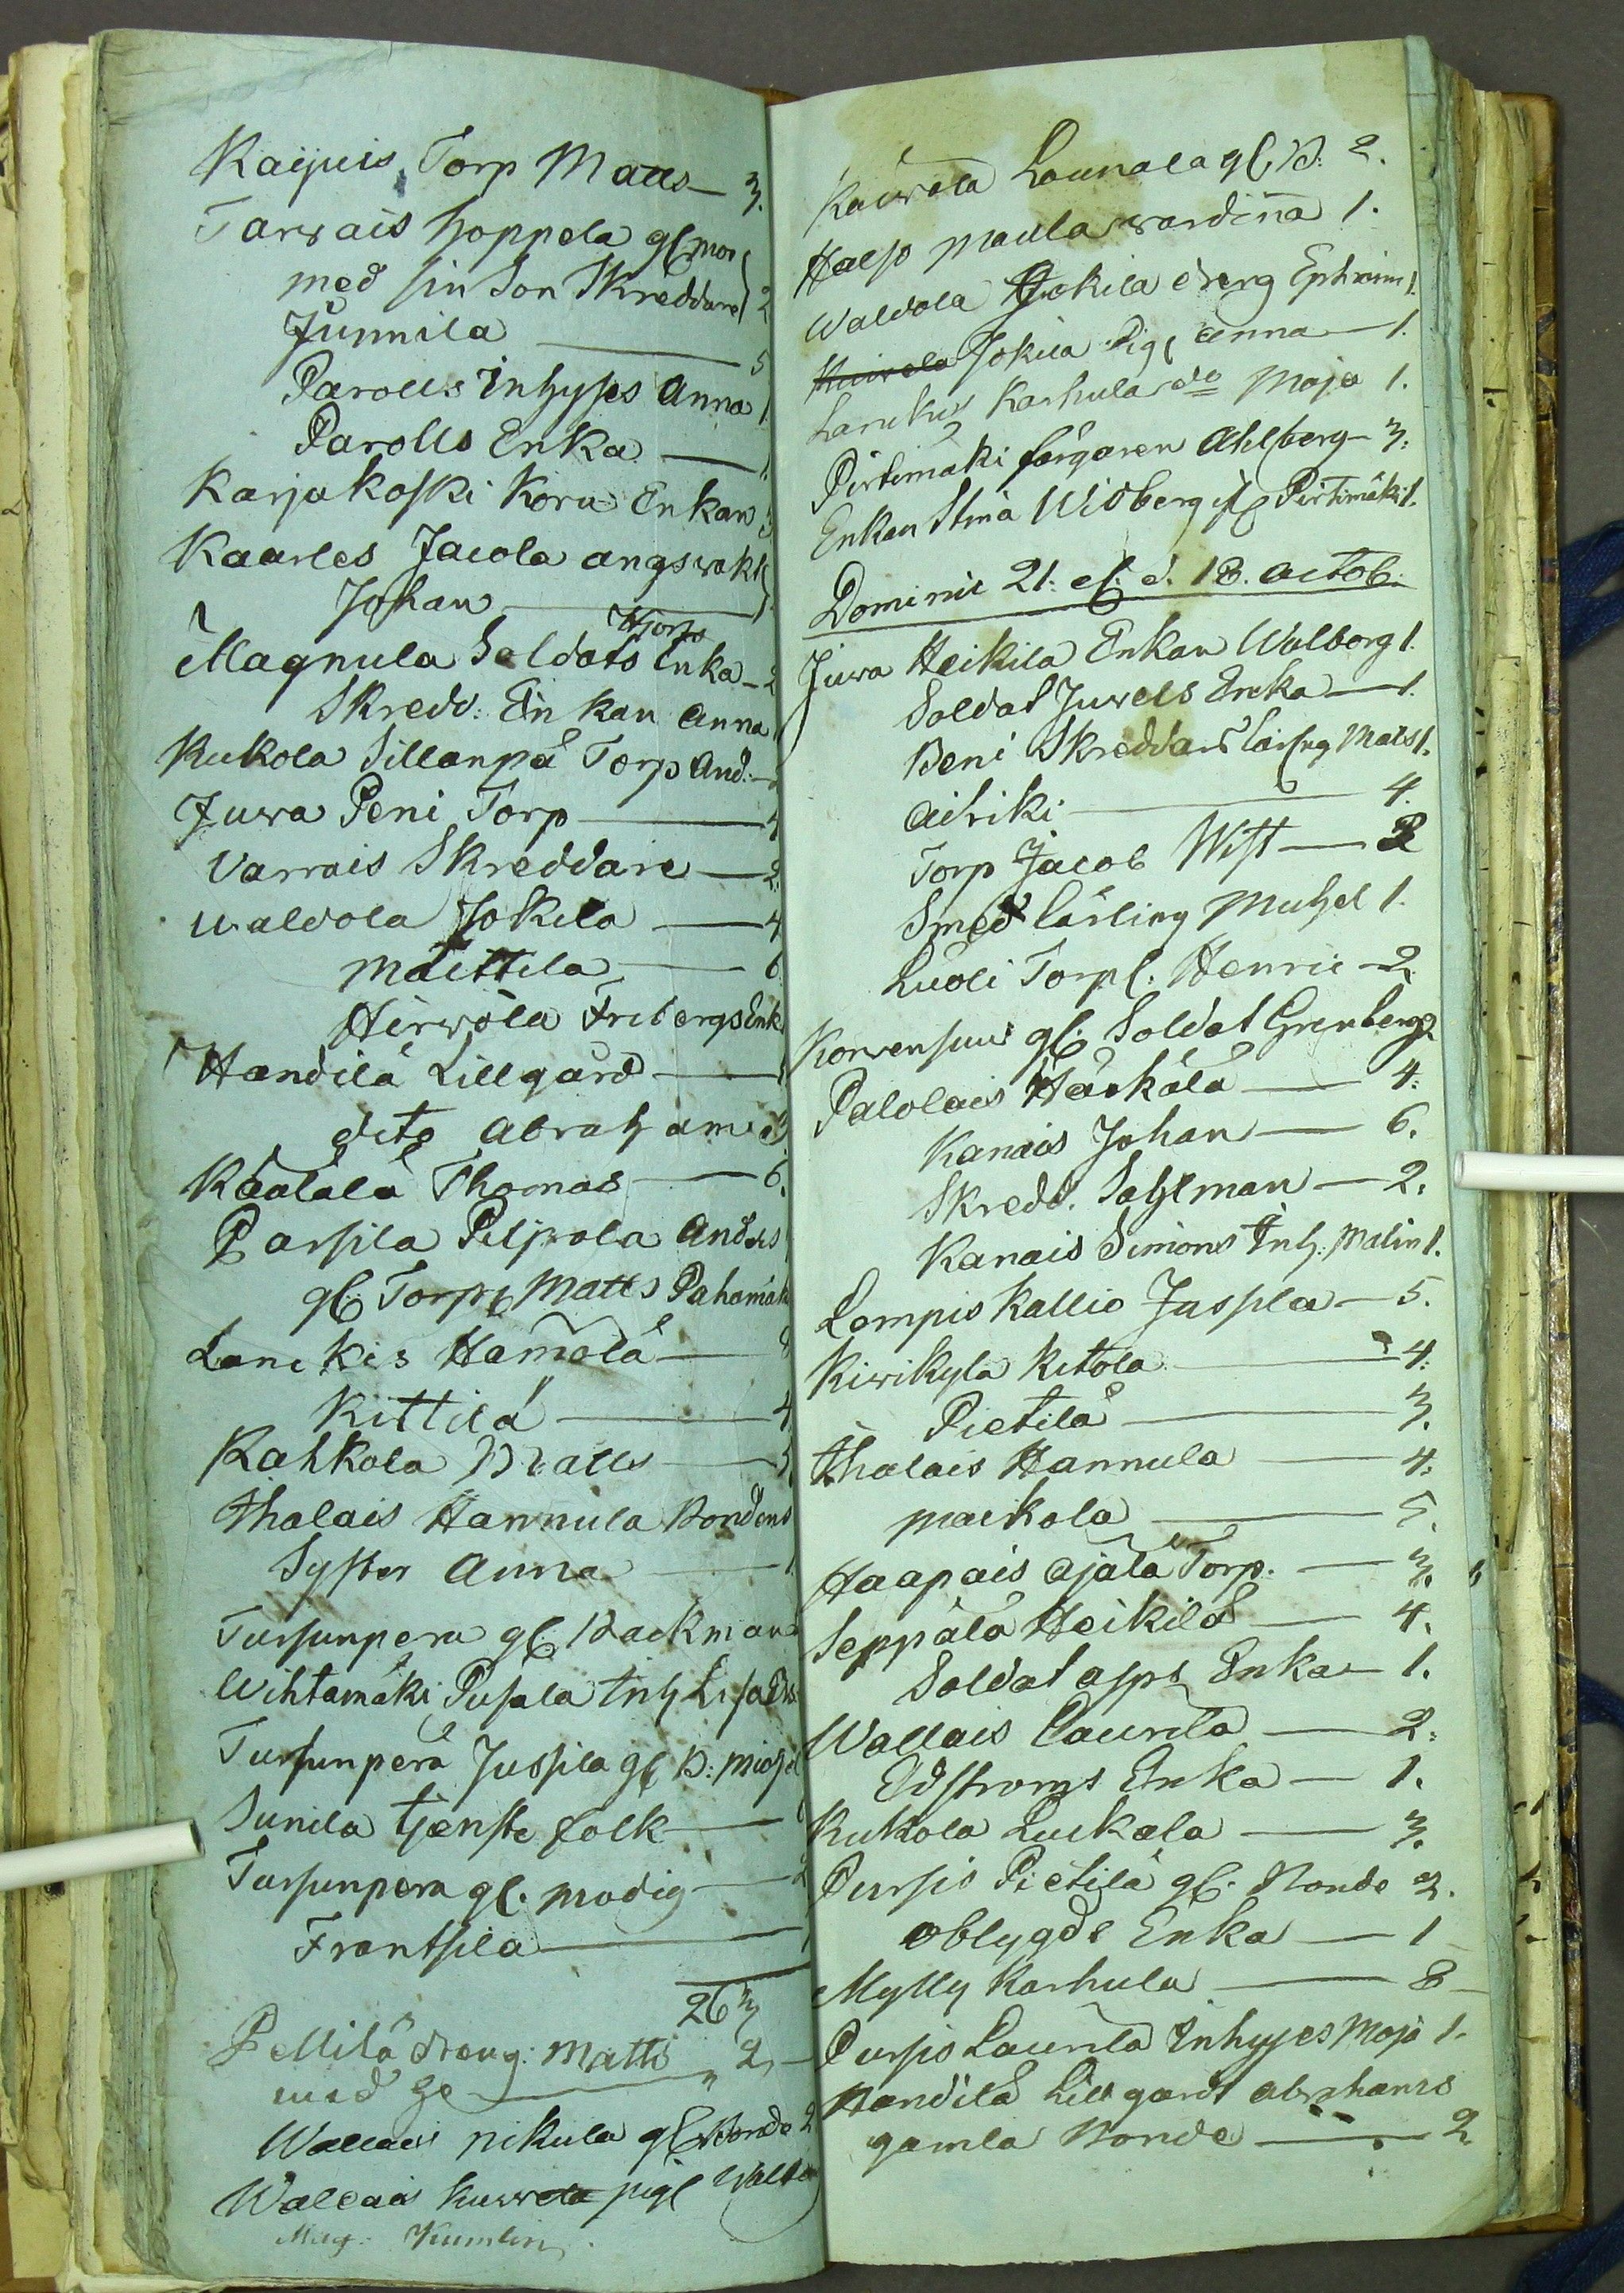 Kaijuis Torp Matts — 3.
Tarvais Hoppela gl. mor
med sin Son Skreddare 2
Junnila — 5
Parolls Inhyses Anna 1
Parolls Enka — 1.
Karjakoski Koru Enkan 3
Kaarles Jacola angsvakt
Johan —
Hjorts
Magnula Soldats Enka — 2
Skredd: Enkan Anna 1
Kukola Sillanpä Torp And. —
Juva Peni Torp — 4
Varvais Skreddare — 2.
Waldola Jokila — 4
Mattila — 6.
Hirvola Fribergs Enk.
Handilä Lillgård — 1
dito Abrahams
Käätälä Thomas — 6.
Parsila Piljola Anders
gl. Torp. Matts Pahamäk
Lanckis Hamolä —
Kittilä — 4
Kahkola Matts — 5
Thalais Hannula Bondens
Syster Anna — 1
Tursunpera gl. Backman
Wihtamäki Pusala Inh Lisa
Tursunperä Jussila gl. B: Michel
Sunila tjenste folk —
Tursunpera gl. Modig — 2
Frantsila —
263
Pellilä dreng: Matts „ 2, —
med
Wallais Nikula gl. Bonde 2
Wallais Kuvvela pig. Walb
Mag. Kumlin.
Kauvola Launala gl. B: 2.
Halso Maula wardinna 1.
Waldola Jokila dreng Ephraim 1.
Kuivela Jokila Pig. Anna — 1.
Lanckis Karhula do Maja 1.
Pirtimäki färgaren Ahlberg — 3.
Enkan Stina Widberg Pirtimäki 1.
Dominic 21. ef. d. 18. Octob.
Juva Heikila Enkan Walborg 1.
Soldat Juvels Encka — 1.
Beni Skreddars lärling Mats 1.
Aihiki — 4.
Torp Jacob Wist — 2
Smeds lärling Michel 1.
Luoli Torp. Henric — 2
Korvensuu gl. Soldat Grenberg 2
Palolais Härkälä — 4.
Kanais Johan — 6.
Skredd. Sahlman — 2.
Kanais Simons Inh. Malin 1.
Lempis Kallio Jussila — 5.
Kivikyla Kitola — 4.
Pietilä — 3.
Thalais Hannula — 4.
Maikola — 5.
Haapais Ajala Torp. — 3.
Seppälä Heikilä — 4.
Soldat Asps Enka — 1.
Wallais Laurila — 2.
Edstroms Enka — 1.
Kukola Luckala — 3.
Pursis Pietilä gl. Bonde 2.
Oblygds Enka — 1
Mylly Karhula — 8 —
Pursis Laurila Inhyses Maja 1.
Handila Lillgards Abrahams
gamla Bonde — 2